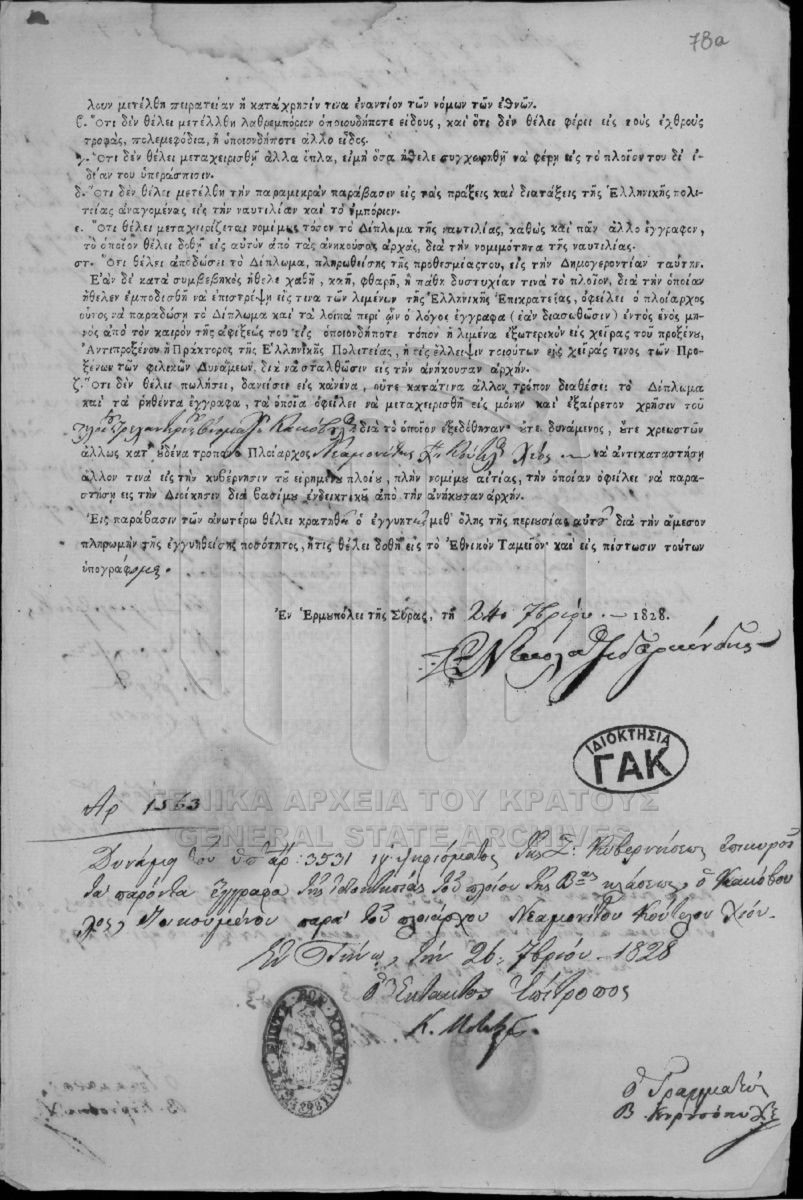 78a
λουν μετέλθη πειρατείαν ἢ κατάχρησίν τινα ἐναντίον τῶν νόμων τῶν ἐθνῶν.
ϐ. Ὅτι δὲν θέλει μετέλθη λαθρεμπόριον ὁποιουδήποτε εἴδους, καὶ ὅτι δὲν θέλει φέρει εἰς τοὺς ἐχθροὺς
τροφὰς, πολεμεφόδια, ἢ ὁποιονδήποτε ἄλλο εἶδος.
γ. Ὅτι δὲν θέλει μεταχειρισθῆ ἄλλα ὅπλα, εἰμὴ ὅσα ἤθελε συγχωρηθῆ νὰ φέρῃ εἰς τὸ πλοῖόν του δι᾽ ἰ-
δίαν του ὑπεράσπισιν.
δ. Ὅτι δὲν θέλει μετέλθη τὴν παραμικρὰν παράβασιν εἰς τὰς πράξεις καὶ διατάξεις τῆς Ἑλληνικῆς πολι-
τείας ἀναγομένας εἰς τὴν ναυτιλίαν καὶ τὸ ἐμπόριον.
ε. Ὅτι θέλει μεταχειρίζεται νομίμως τόσον τὸ Δίπλωμα τῆς ναυτιλίας, καθὼς καὶ πᾶν ἄλλο ἔγγραφον,
τὸ ὁποῖον θέλει δοθῆ εἰς αὐτὸν ἀπὸ τὰς ἀνηκούσας ἀρχὰς, διὰ τὴν νομιμότητα τῆς ναυτιλίας.
στ. Ὅτι θέλει ἀποδώσει τὸ Δίπλωμα, πληρωθείσης τῆς προθεσμίας του, εἰς τὴν Δημογεροντίαν ταύτην.
Ἐὰν δὲ κατὰ συμβεβηκὸς ἤθελε χαθῆ, καῆ, φθαρῆ, ἢ πάθῃ δυστυχίαν τινὰ τὸ πλοῖον, διὰ τὴν ὁποίαν
ἤθελεν ἐμποδισθῆ νὰ ἐπιστρέψῃ εἰς τινα τῶν λιμένων τῆς Ἑλληνικῆς Ἐπικρατείας, ὀφείλει ὁ πλοίαρχος
οὗτος νὰ παραδώσῃ τὸ Δίπλωμα καὶ τὰ λοιπὰ περὶ ὧν ὁ λόγος ἔγγραφα (ἐὰν διασωθῶσιν) ἐντὸς ἑνὸς μη-
νὸς ἀπὸ τὸν καιρὸν τῆς ἀφίξεώς του εἰς ὁποιονδήποτε τόπον ἢ λιμένα ἐξωτερικὸν εἰς χεῖρας τοῦ προξένου,
Ἀντιπροξένου ἢ Πράκτορος τῆς Ἑλληνικῆς Πολιτείας, ἢ εἰς ἔλλειψιν τοιούτων εἰς χεῖράς τινος τῶν Προ-
ξένων τῶν φιλικῶν Δυνάμεων, διὰ νὰ σταλθῶσιν εἰς τὴν ἀνήκουσαν ἀρχήν.
ζ. Ὅτι δὲν θέλει πωλήσει, δανείσει εἰς κανένα, οὔτε κατά τινα ἄλλον τρόπον διαθέσει τὸ Δίπλωμα
καὶ τὰ ῥηθέντα ἔγγραφα, τὰ ὁποῖα ὀφείλει νὰ μεταχειρισθῇ εἰς μόνην καὶ ἐξαίρετον χρῆσιν τοῦ
διὰ τὸ ὁποῖον ἐξεδόθησαν· ὅτε δυνάμενος, ὅτε χρεωστῶν
ἄλλως κατ᾽ οὐδένα τρόπον ὁ Πλοίαρχος Νεαμονίτης Κούτελ Χίος νὰ ἀντικαταστήσῃ
ἄλλον τινὰ εἰς τὴν κυβέρνησιν τοῦ εἰρημένου πλοίου, πλὴν νομίμου αἰτίας, τὴν ὁποίαν ὀφείλει νὰ παρα-
στήσῃ εἰς τὴν Διοίκησιν διὰ βασίμου ἐνδεικτικοῦ ἀπὸ τὴν ἀνήκουσαν ἀρχήν.
Εἰς παράβασιν τῶν ἀνωτέρω θέλει κρατηθῆ ὁ ἐγγυητὴς μεθ᾽ ὅλης τῆς περιουσίας αὐτοῦ διὰ τὴν ἄμεσον
πληρωμὴν τῆς ἐγγυηθείσης ποσότητος, ἥτις θέλει δοθῆ εἰς τὸ Ἐθνικὸν Ταμεῖον· καὶ εἰς πίστωσιν τούτων
ὑπογράφομαι.
Ἐν Ἑρμουπόλει τῆς Σύρας, τῇ 24 7βρίου 1828.
ΙΔΙΟΚΤΗΣΙΑ
ΓΑΚ
Αρ 1563
ΓΕΝΙΚΑ ΑΡΧΕΙΑ ΤΟΥ ΚΡΑΤΟΥΣ
GENERAL STATE ARCHIVES
Δυνάμει τοῦ ὑπ᾽ ἀρ: 3531 ψηφίσματος τῆς Σ: Κυβερνήσεως ἐπικυροῖ
τὰ παρόντα ἔγγραφα τῆς ἰδιοκτησίας τοῦ πλοίου τῆς Βας κλάσεως, ὁ Κακόβου
λος, διοικουμένου παρὰ τοῦ πλοιάρχου Νεαμονίτου Κούτελου Χίου.
Ἐν Τήνῳ, τὴν 26 7βρίου 1828
Ὁ Ἔκτακτος Ἐπίτροπος
ὁ Γραμματεύς